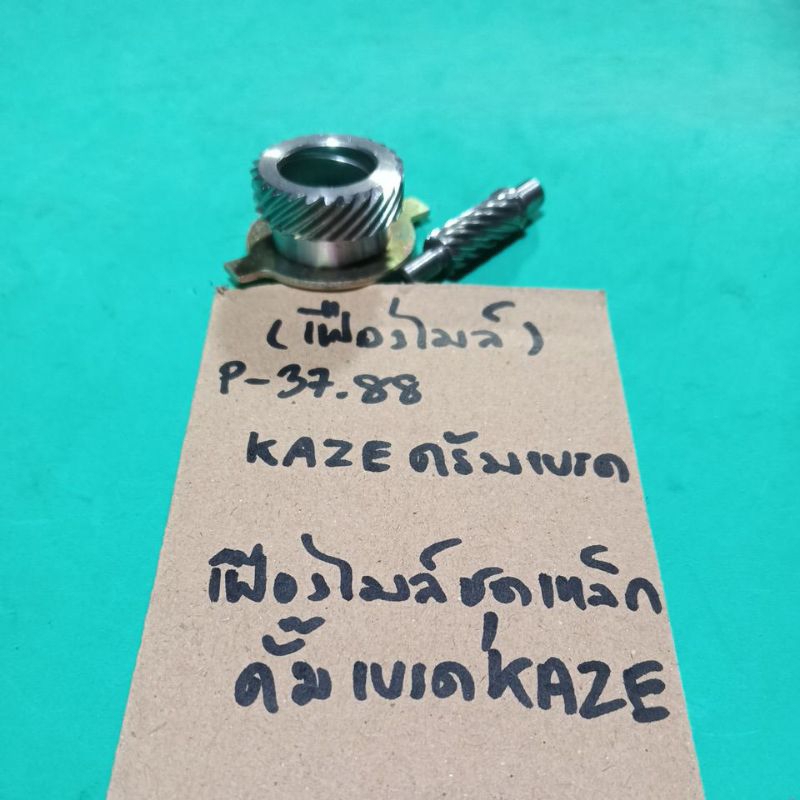 (เฟืองไมล์)
P-37.88
KAZE ดรัมเบรด
เฟืองไมล์ชุดเหล็ก
ดั้มเบรด KAZE